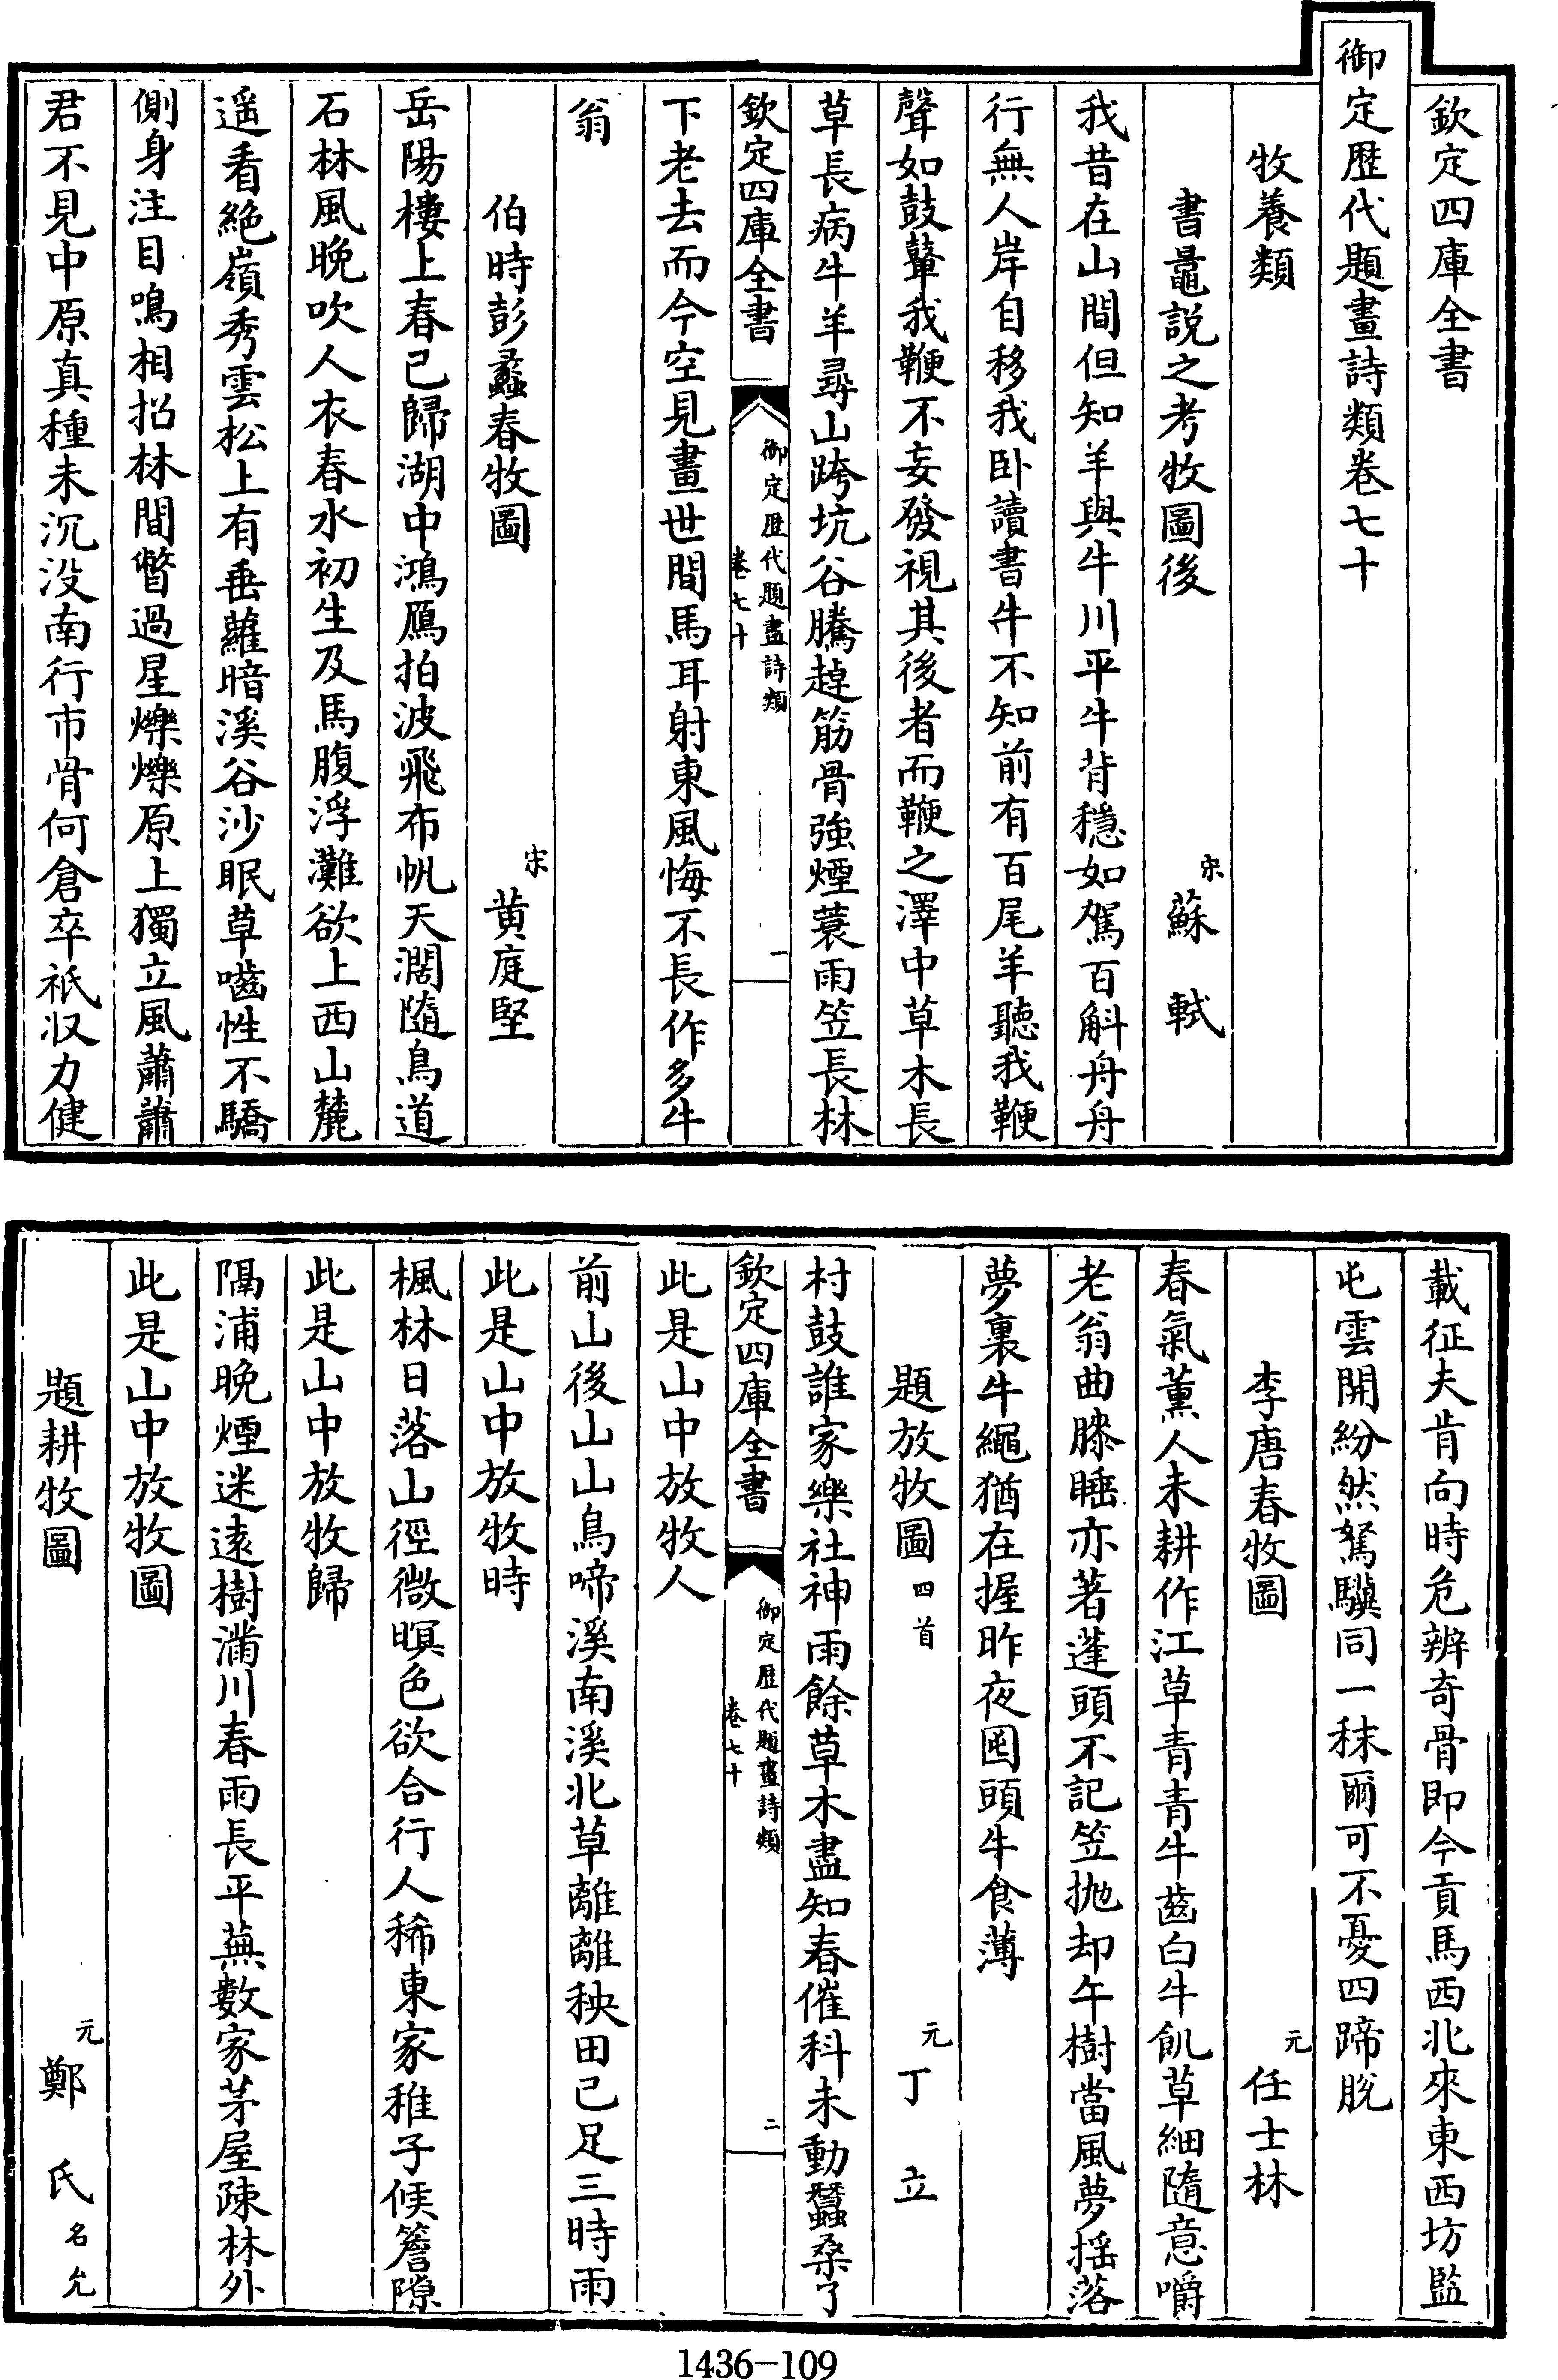 欽定四庫全書
御定歴代題畫詩類卷七十
牧養類
書鼂説之考牧圖後
宋蘇軾
我昔在山間但知羊與牛川平牛背穩如駕百斛舟舟
行無人岸自移我卧讀書牛不知前有百尾羊聽我鞭
聲如鼓鼙我鞭不妄發視其後者而鞭之澤中草木長
草長病牛羊尋山跨坑谷騰趠筋骨強煙蓑雨笠長林
欽定四庫全書
御定歴代題畫詩類
卷七十
一
下老去而今空見畫世間馬耳射東風悔不長作多牛
翁
伯時彭蠡春牧圖
宋黄庭堅
岳陽樓上春已歸湖中鴻鴈拍波飛布帆天濶隨鳥道
石林風晚吹人衣春水初生及馬腹浮灘欲上西山麓
遥看絶嶺秀雲松上有垂蘿暗溪谷沙眠草嚙性不驕
側身注目鳴相招林間瞥過星爍爍原上獨立風蕭蕭
君不見中原真種未沉没南行市骨何倉卒祇収力健
載征夫肯向時危辨奇骨即今貢馬西北來東西坊監
屯雲開紛然駑驥同一秣爾可不憂四蹄脱
李唐春牧圖
元任士林
春氣薰人未耕作江草青青牛齒白牛飢草細隨意嚼
老翁曲膝睡亦著蓬頭不記笠抛却午樹當風夢揺落
夢裏牛繩猶在握昨夜囤頭牛食薄
題放牧圖四首
元丁立
村鼓誰家樂社神雨餘草木盡知春催科未動蠶桑了
欽定四庫全書
御定歴代題畫詩類
卷七十
二
此是山中放牧人
前山後山山鳥啼溪南溪北草離離秧田已足三時雨
此是山中放牧時
楓林日落山徑微暝色欲合行人稀東家稚子候簷隙
此是山中放牧歸
隔浦晚煙迷遠樹滿川春雨長平蕪數家茅屋踈林外
此是山中放牧圖
題耕牧圖
元鄭氏名允
1436-109